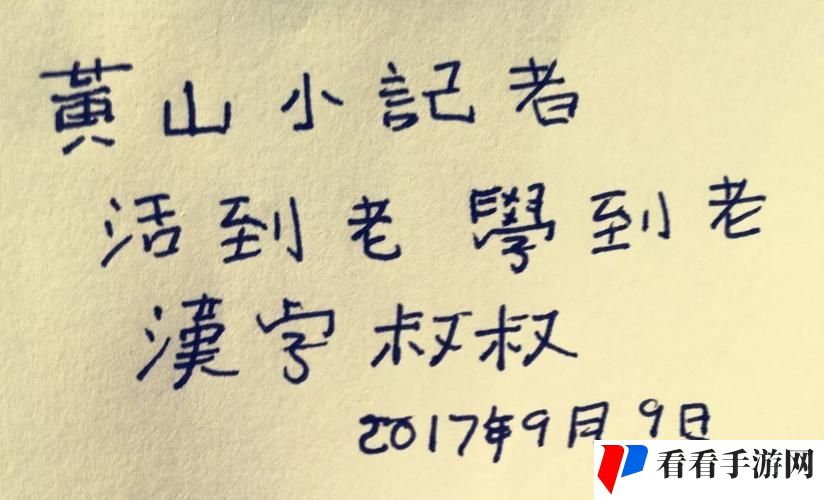 黃山小記者
活到老 學到老
漢字叔叔
2017年9月9日
看看手游网